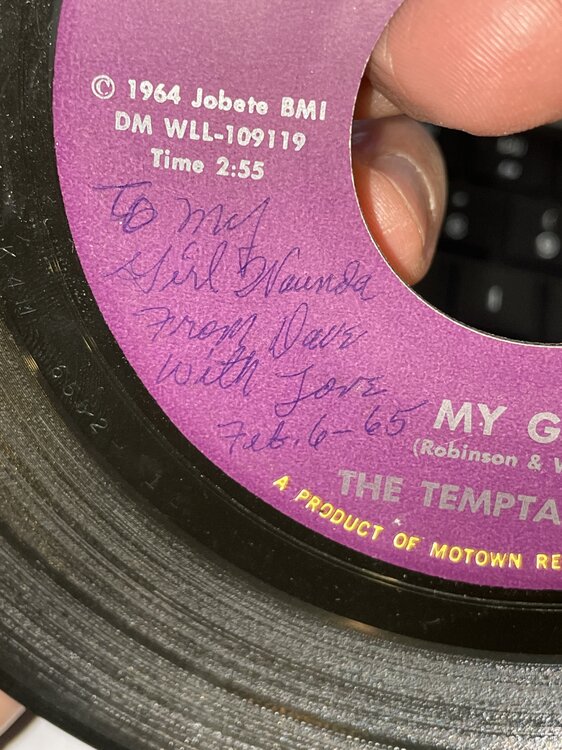 © 1964 Jobete BMI
DM WLL-109119
Time 2:55
To My
Girl Waunda
From Dave
With Love
Feb. 6-65
MY G
(Robinson & W
THE TEMPTA
A PRODUCT OF MOTOWN RE